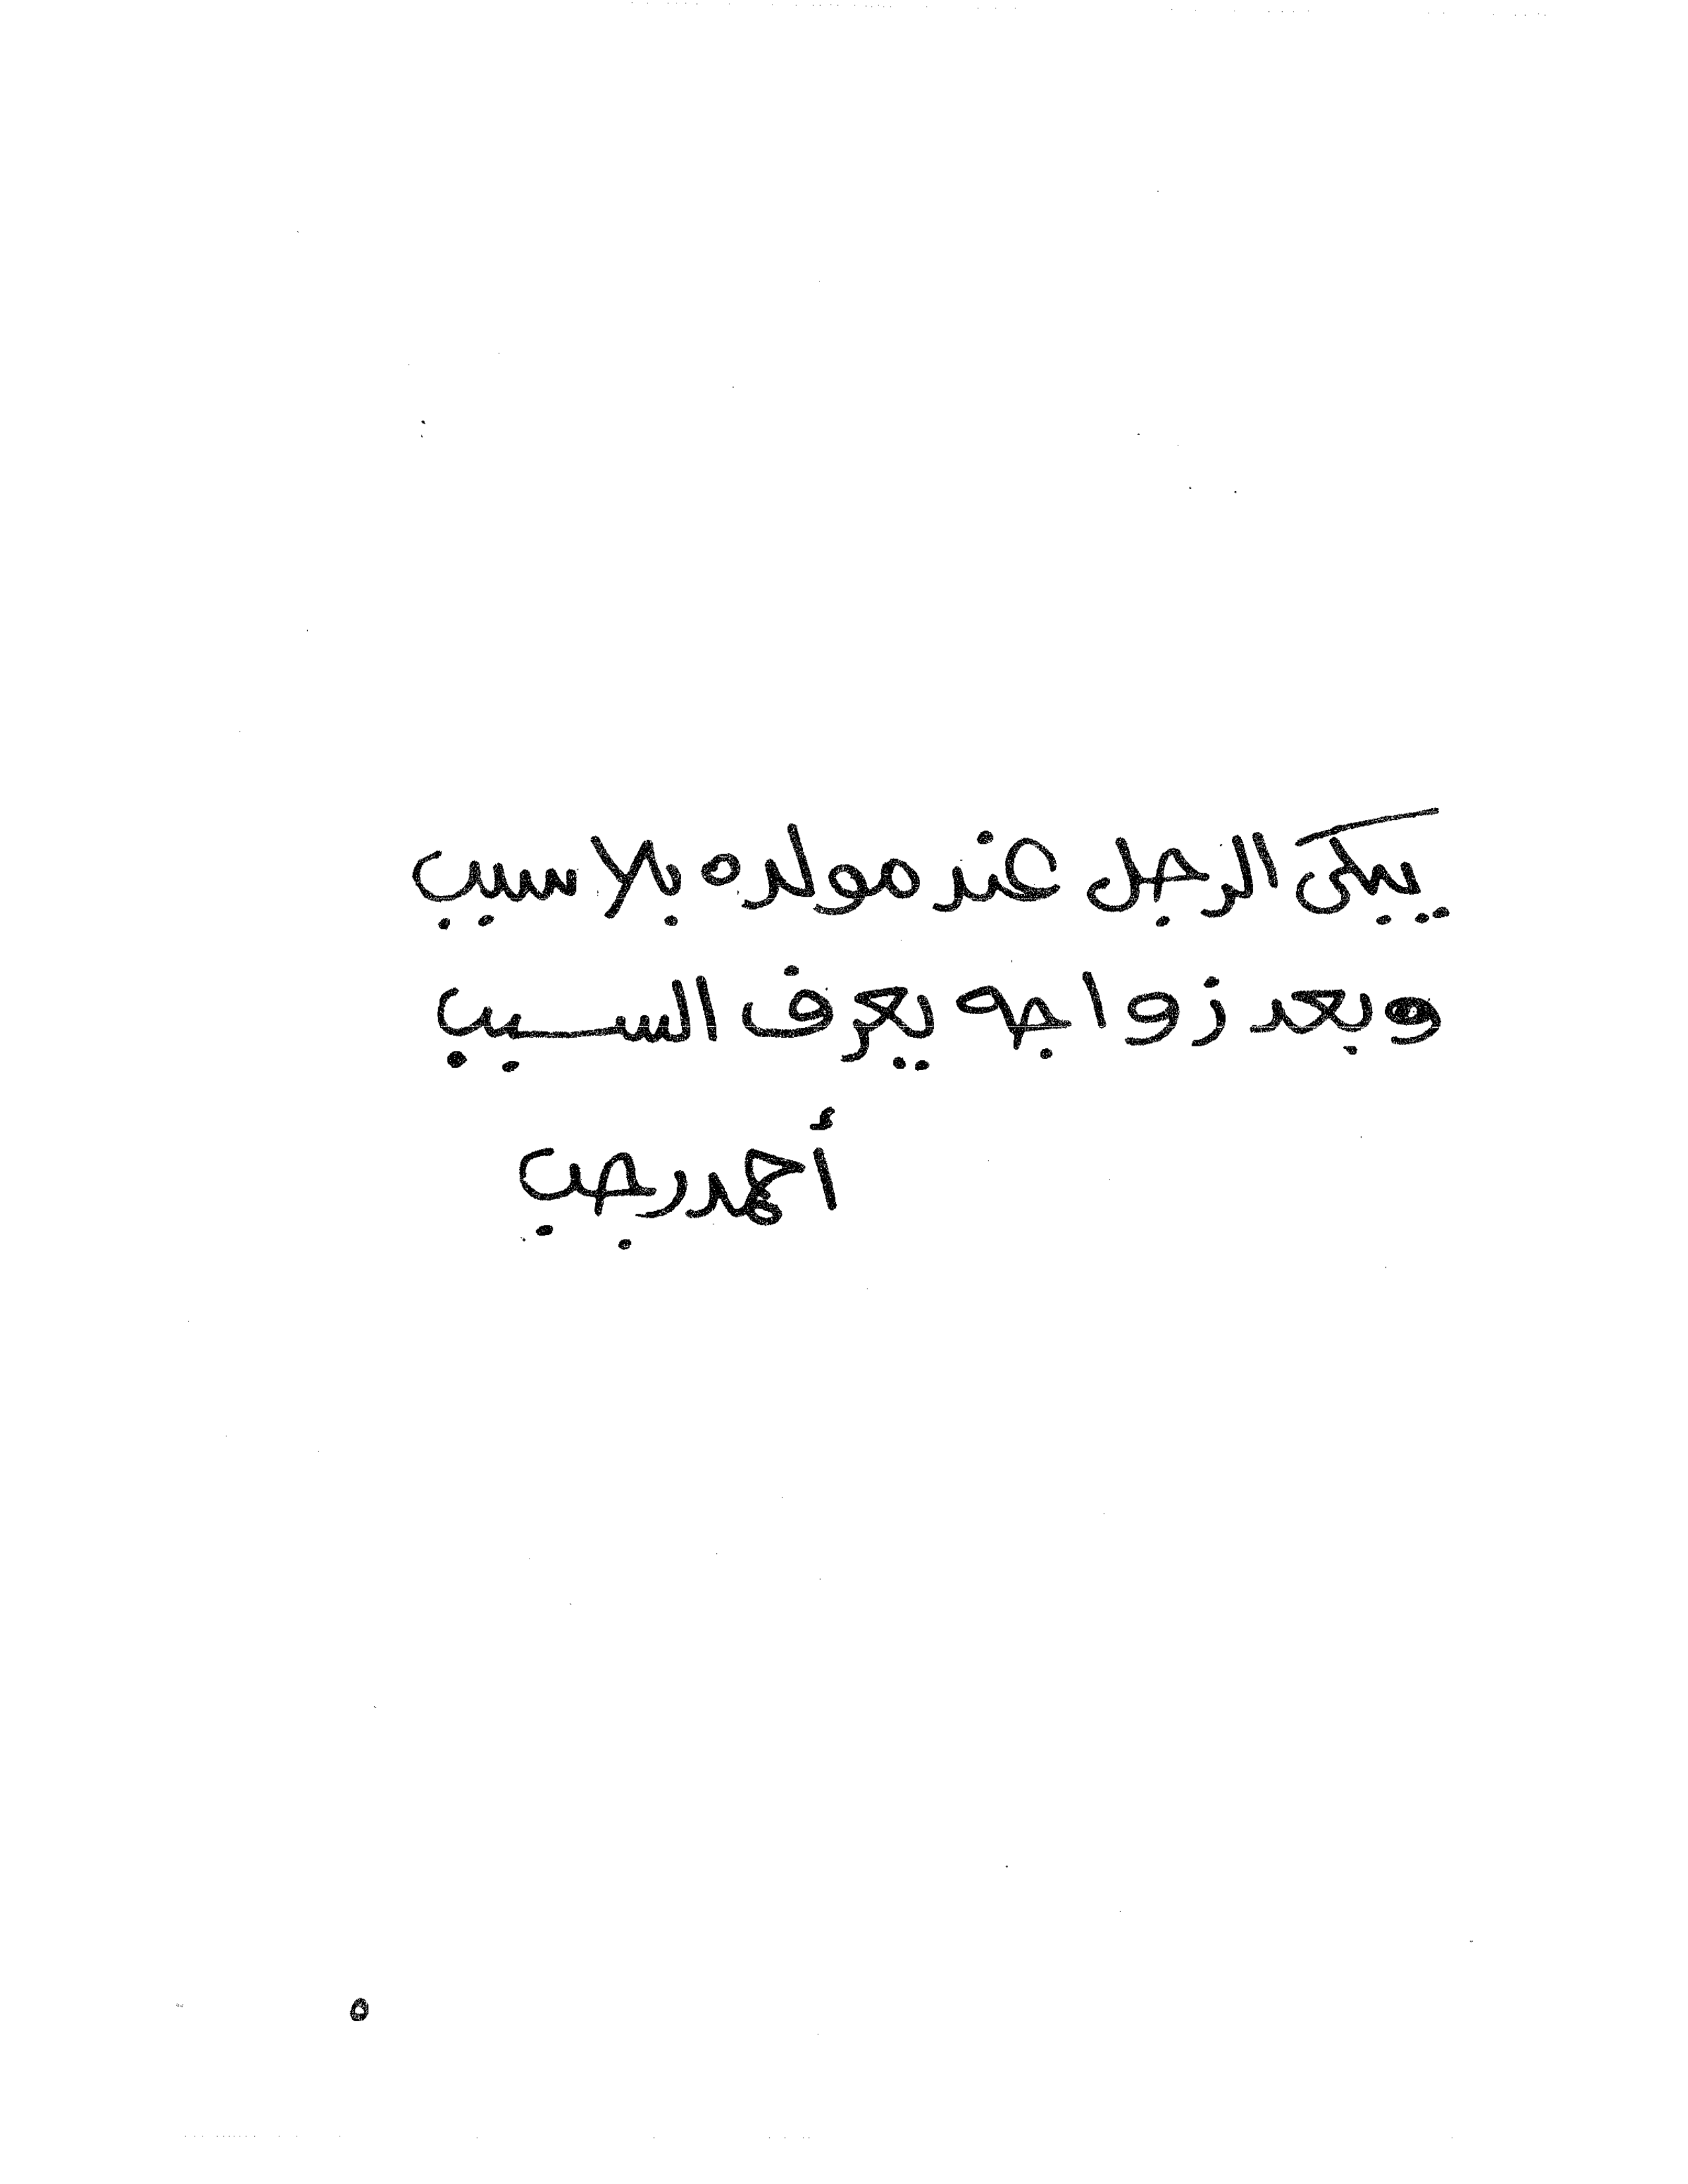 يبكى الرجل عند مولده بلا سبب
وبعد زواجه يعرف السبب
أحمد رجب
٥